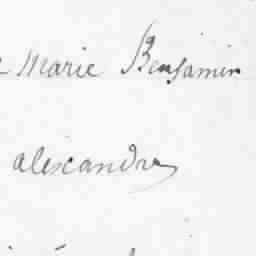 Marie Benjamin
alexandre